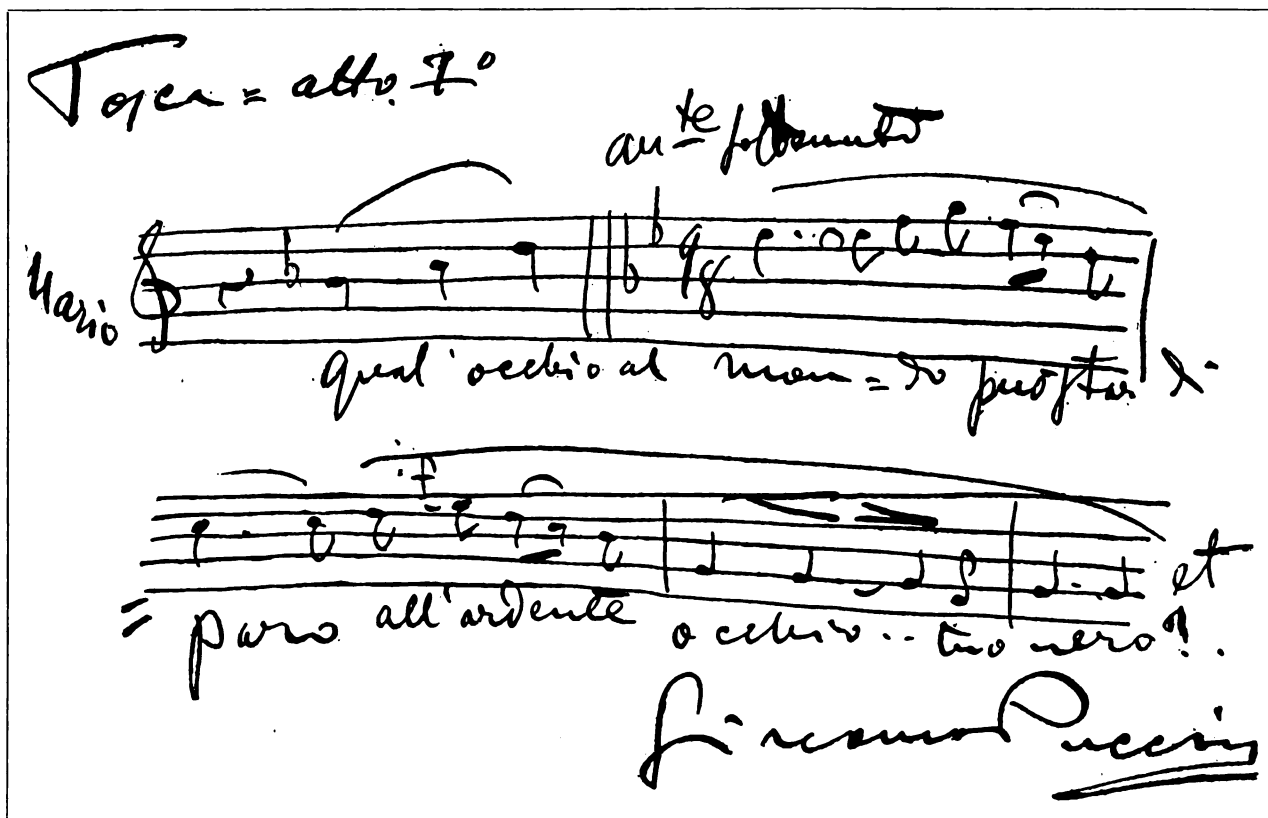 Tosca = atto. Iº
an.te sostenuto
Mario
9/8
qual'occhio al mon = do può star di
= paro all'ardente occhio .. tuo nero?. et
Giacomo Puccini